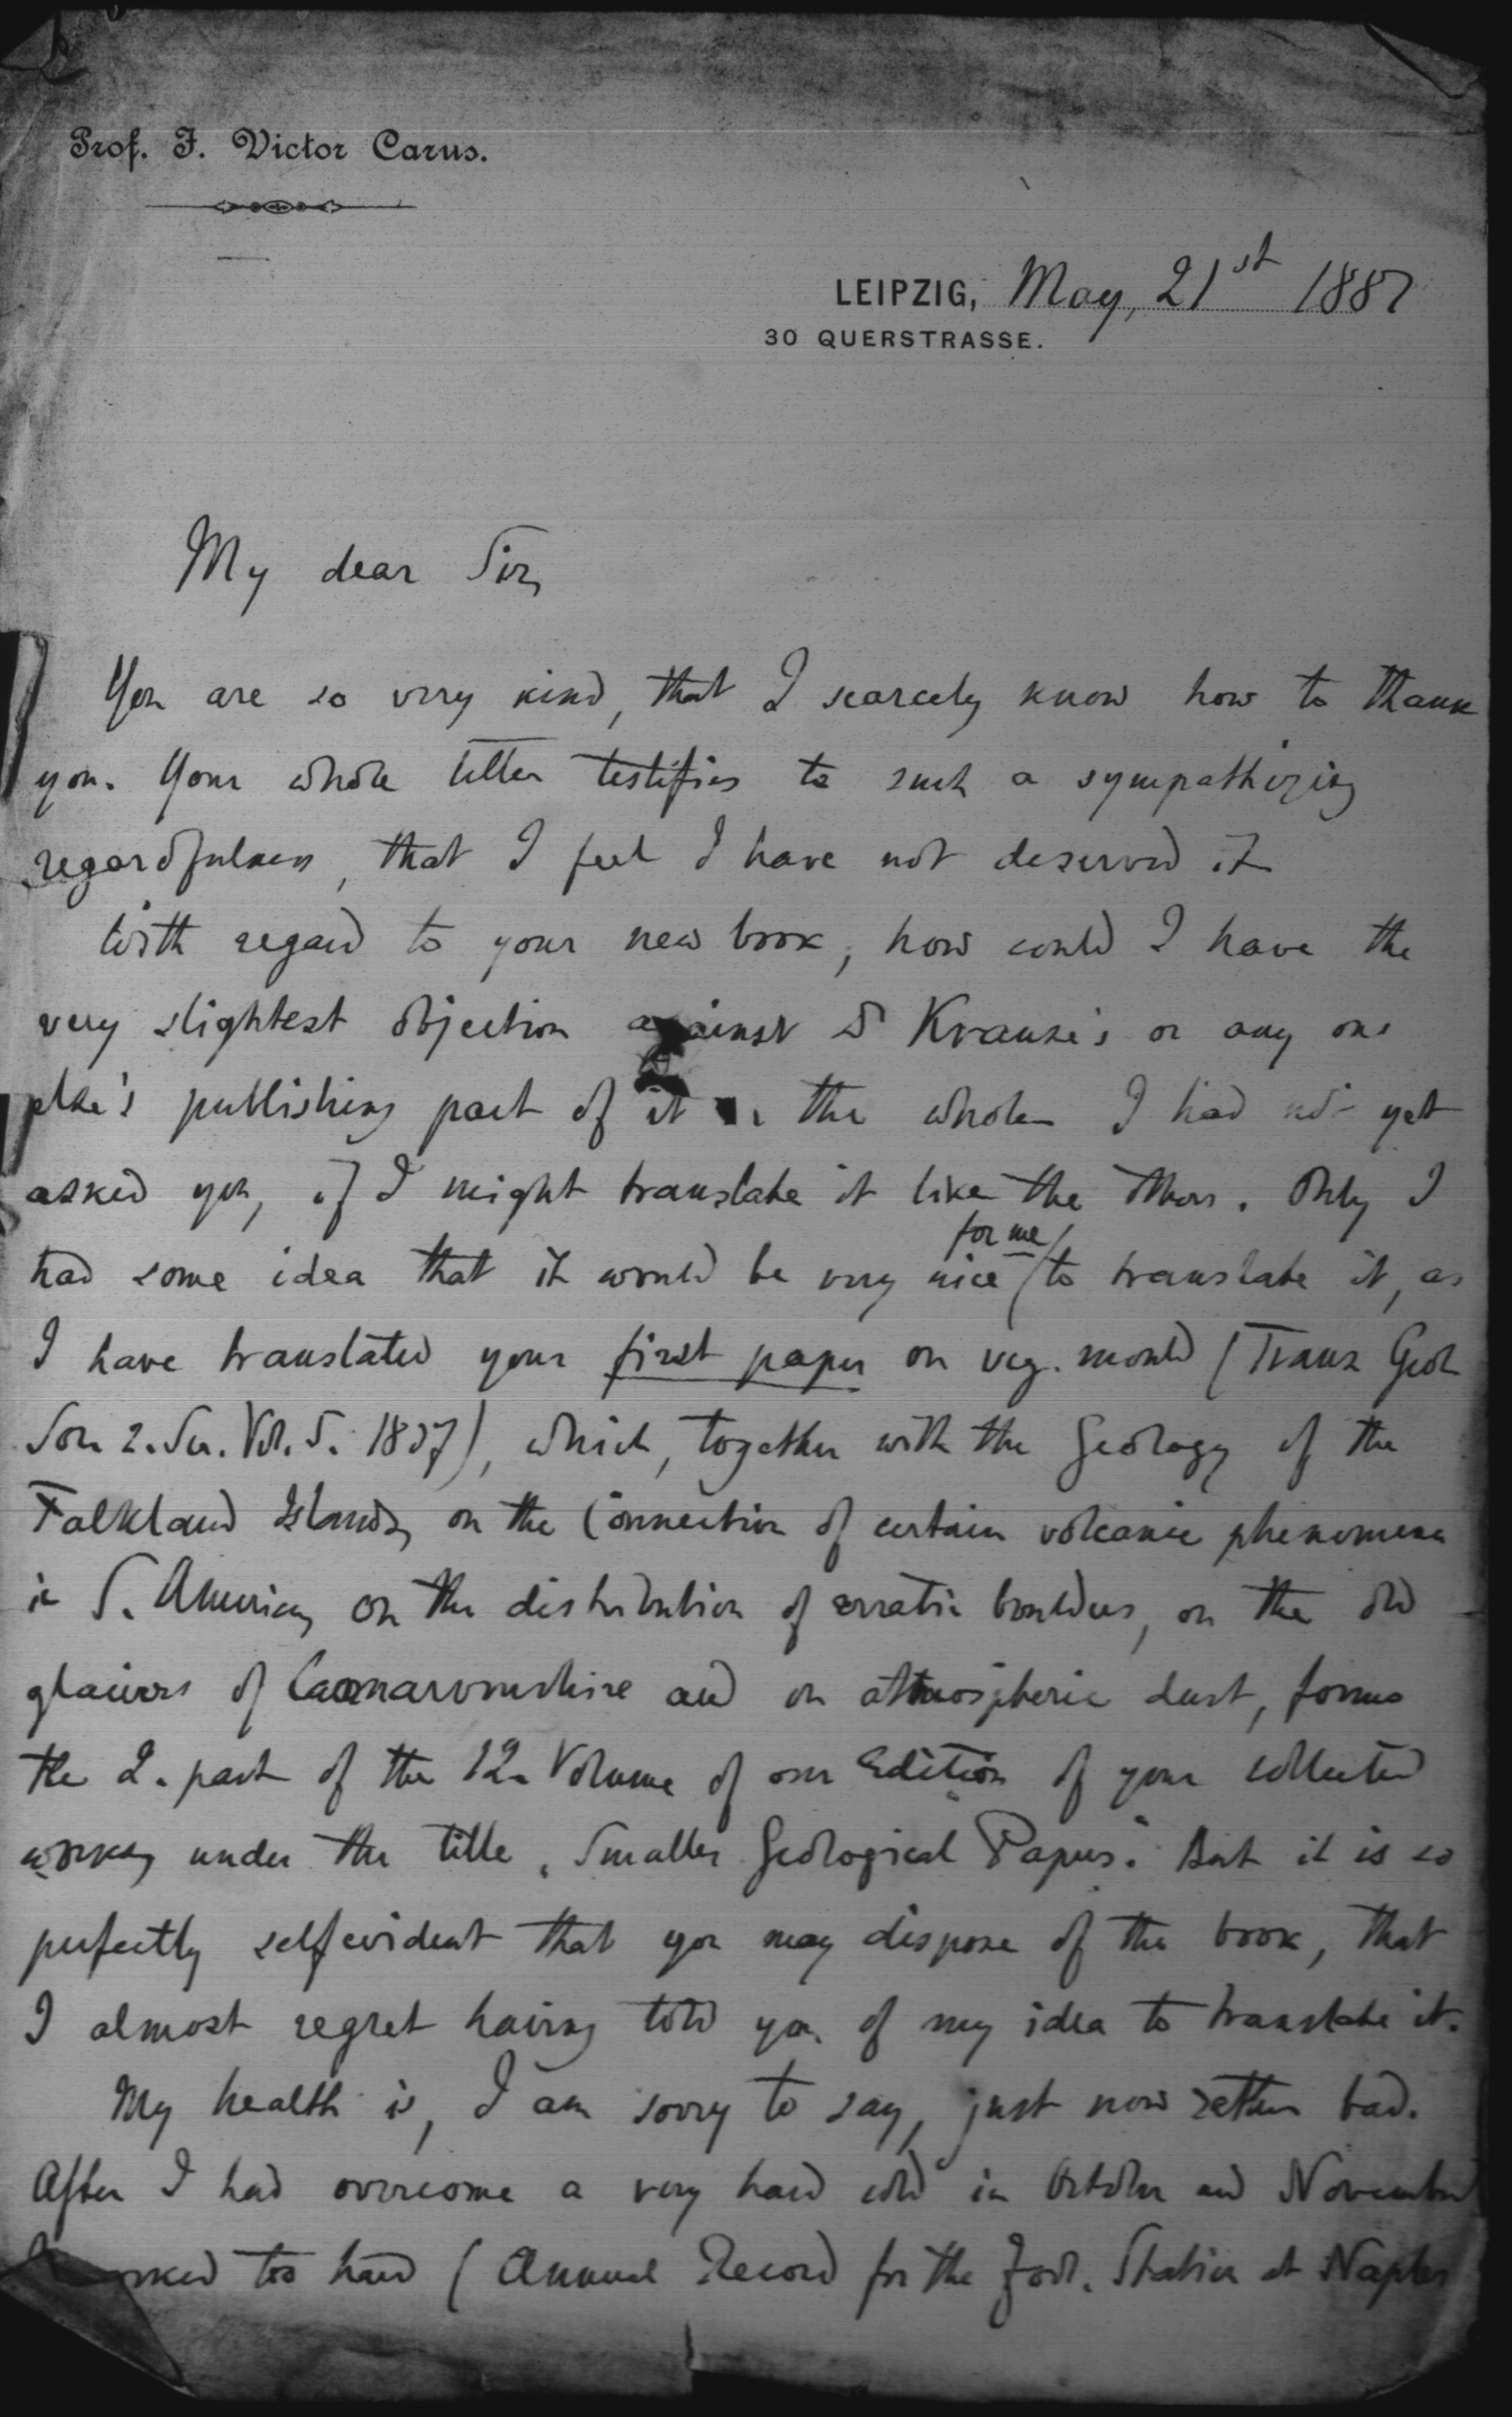 Prof. J. Victor Carus.
LEIPZIG, May, 21st 1881
30 QUERSTRASSE.
My dear Sir,
You are so very kind, that I scarcely know how to thank
you. Your whole letter testifies to such a sympathizing
regardfulness, that I feel I have not deserved it
With regard to your new book, how could I have the
very slightest objection against Dr Krause's or any one
else's publishing part of it or the whole. I had not yet
asked you, if I might translate it like the others. Only I
had some idea that it would be very nice for me to translate it, as
I have translated your first paper on veg. mould (Trans Geol
Soc. 2. Ser. Vol. 5. 1837), which, together with the Geology of the
Falkland Islands, on the Connection of certain volcanic phenomena
in S. America, on the distribution of erratic boulders, on the old
glaciers of Caernarvonshire and on atmospheric dust, forms
the 2. part of the 12. Volume of our Edition of your collected
works, under the title „Smaller Geological Papers." But it is so
perfectly selfevident that you may dispose of the book, that
I almost regret having told you of my idea to translate it.
My health is, I am sorry to say, just now rather bad.
After I had overcome a very hard cold in October and November
worked too hard (Annual Record for the Zool. Station at Naples